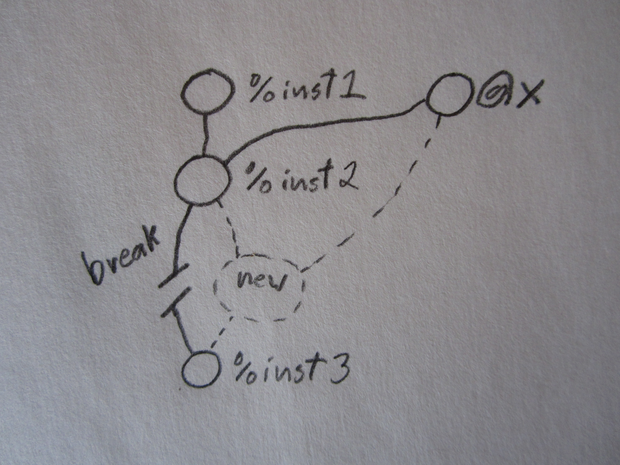 %inst1
@x
%inst2
break
new
%inst3